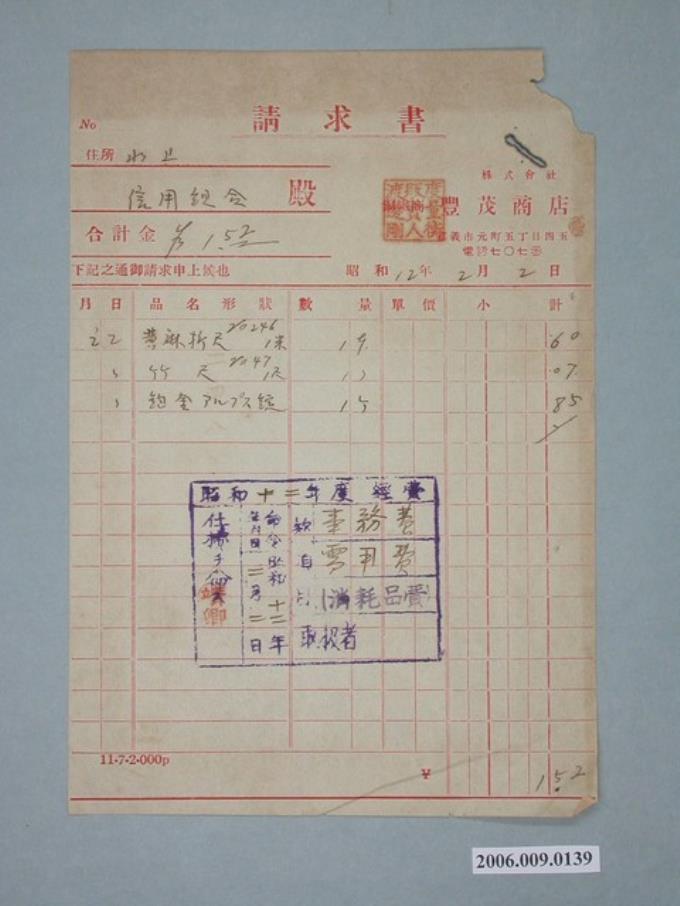 請求書
No
住所 水上
信用組合 殿
株式會社
豐茂商店
合計金 1.52
嘉義市元町五丁目四五
電話七〇七番
下記之通御請求申上候也
昭和12年2月2日
月 日 品名形狀 數量 單價 小計
2 2 黃麻折尺 No246 1米 .60
竹尺 No47 1尺 .07
アルプス 85
昭和十二年度經費
款 事務費
目 需用費
消耗品費
取扱者
仕拂
十二年二月二日
靖卿
11·7·2·000p
¥ 1.52
2006.009.0139